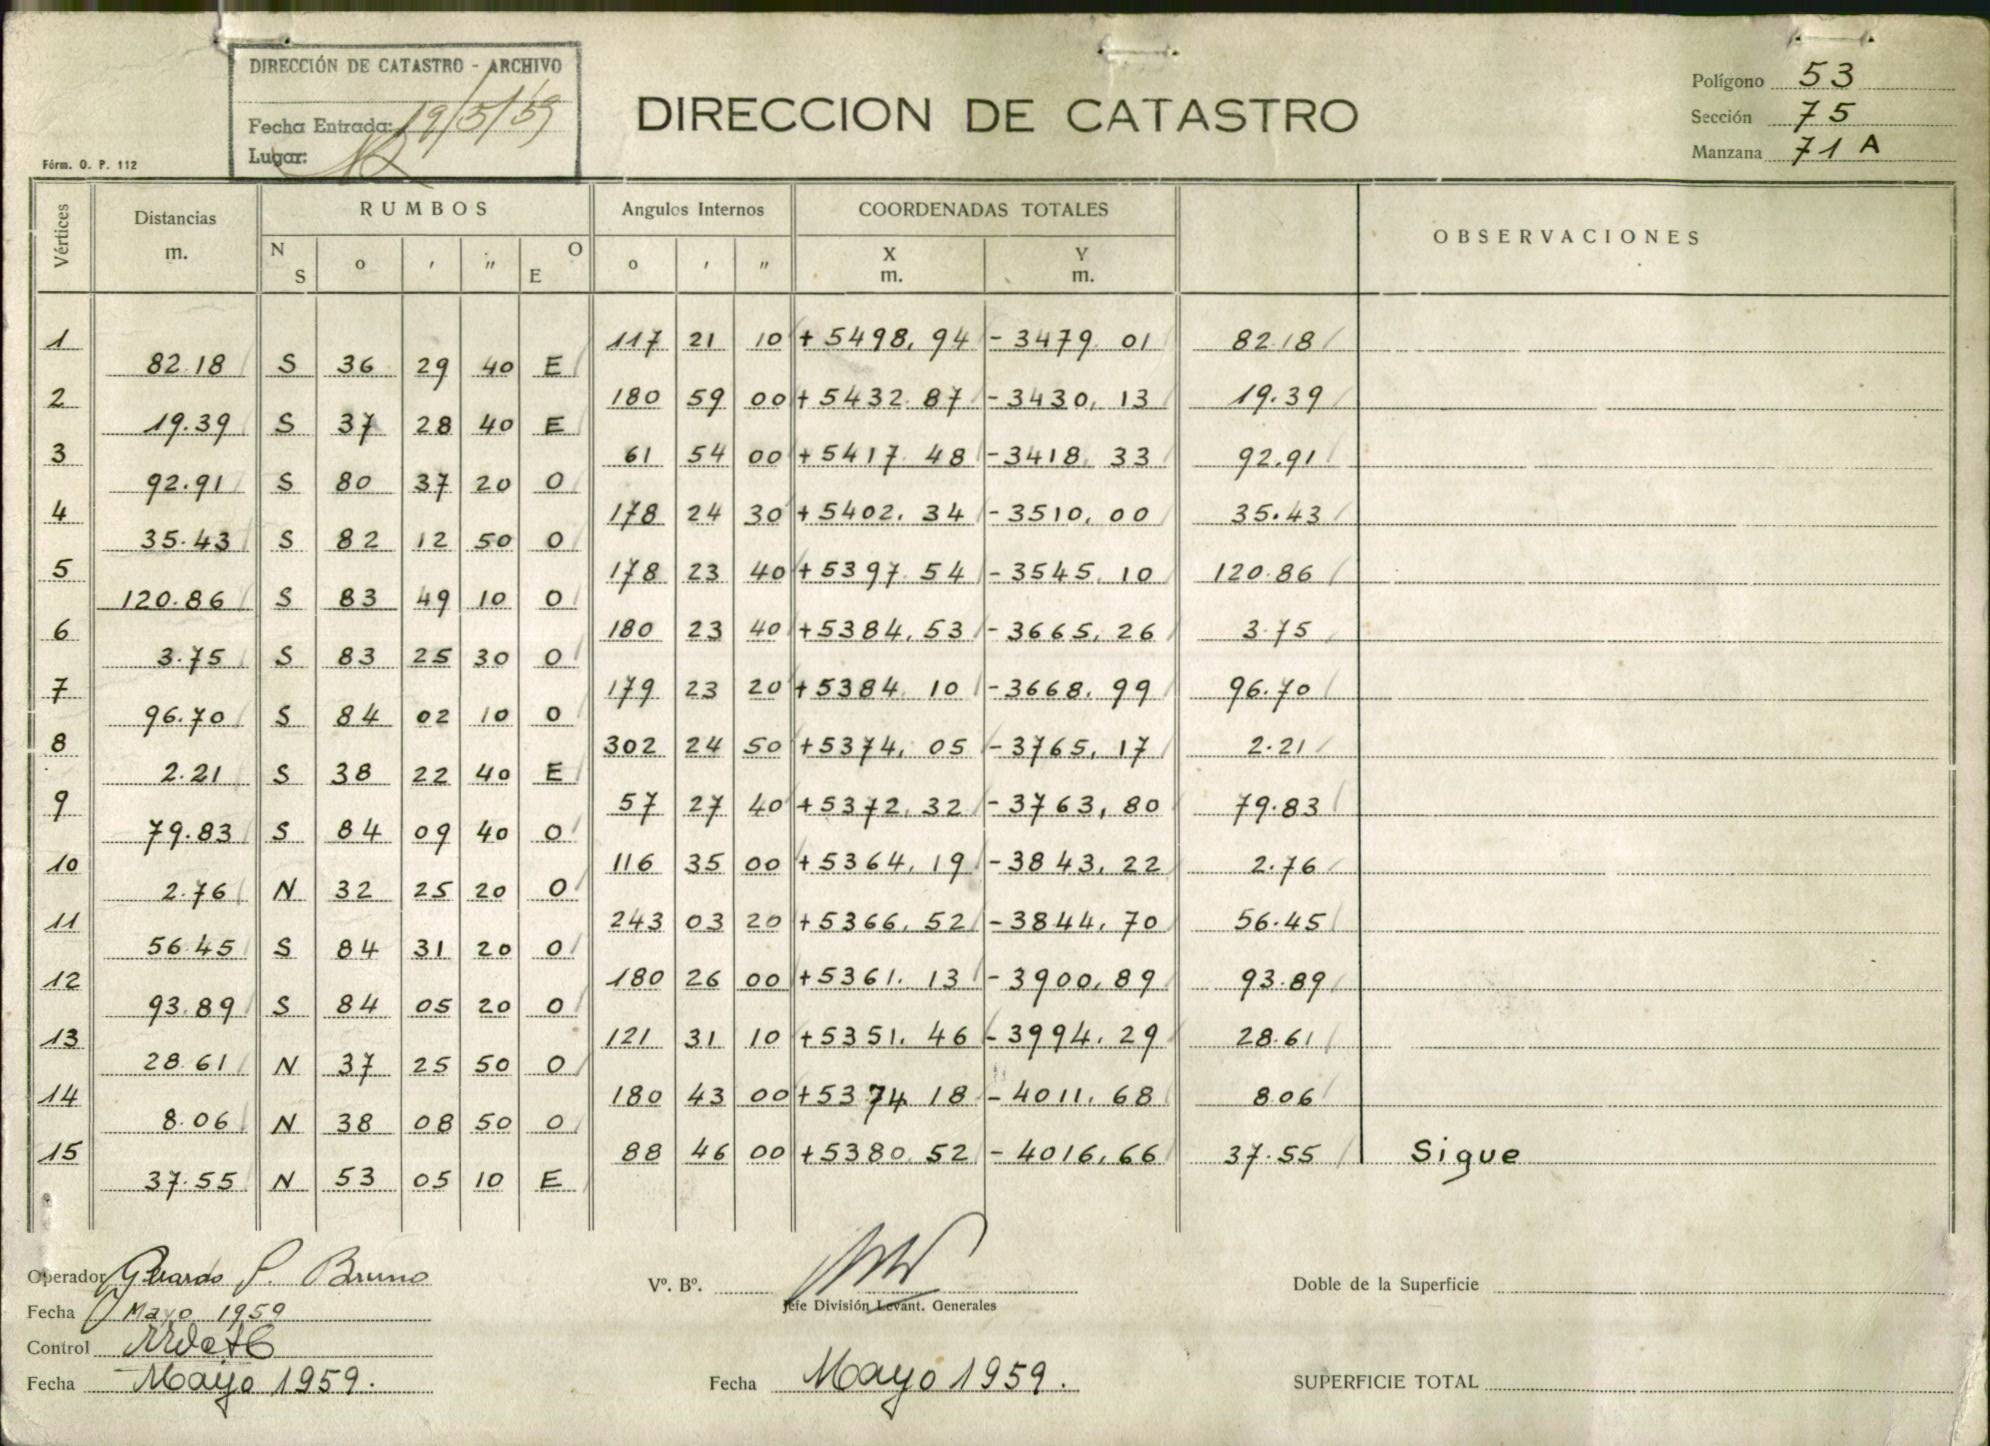 DIRECCIÓN DE CATASTRO - ARCHIVO
Fecha Entrada: 19/5/59
Lugar:
Fórm. O. P. 112
DIRECCION DE CATASTRO
Polígono 53
Sección 75
Manzana 71 A
Vértices Distancias m. RUMBOS Angulos Internos COORDENADAS TOTALES OBSERVACIONES
N S o ' " O E o ' " X m. Y m.
1 117 21 10 + 5498,94 - 3479 01 82.18
82.18 S 36 29 40 E
2 180 59 00 + 5432.87 - 3430,13 19.39
19.39 S 37 28 40 E
3 61 54 00 + 5417 48 - 3418,33 92.91
92.91 S 80 37 20 O
4 178 24 30 + 5402,34 - 3510,00 35.43
35.43 S 82 12 50 O
5 178 23 40 + 5397.54 - 3545,10 120.86
120.86 S 83 49 10 O
6 180 23 40 + 5384,53 - 3665,26 3.75
3.75 S 83 25 30 O
7 179 23 20 + 5384 10 - 3668,99 96.70
96.70 S 84 02 10 O
8 302 24 50 + 5374,05 - 3765,17 2.21
2.21 S 38 22 40 E
9 57 27 40 + 5372,32 - 3763,80 79.83
79.83 S 84 09 40 O
10 116 35 00 + 5364,19 - 3843,22 2.76
2.76 N 32 25 20 O
11 243 03 20 + 5366,52 - 3844,70 56.45
56.45 S 84 31 20 O
12 180 26 00 + 5361.13 - 3900,89 93.89
93.89 S 84 05 20 O
13 121 31 10 + 5351.46 - 3994.29 28.61
28.61 N 37 25 50 O
14 180 43 00 + 5374 18 - 4011,68 8.06
8.06 N 38 08 50 O
15 88 46 00 + 5380.52 - 4016,66 37.55 Sigue
37.55 N 53 05 10 E
Operador Gerardo P. Bruno
Fecha Mayo 1959
Control
Fecha Mayo 1959.
Vº. Bº.
Jefe División Levant. Generales
Fecha Mayo 1959.
Doble de la Superficie
SUPERFICIE TOTAL